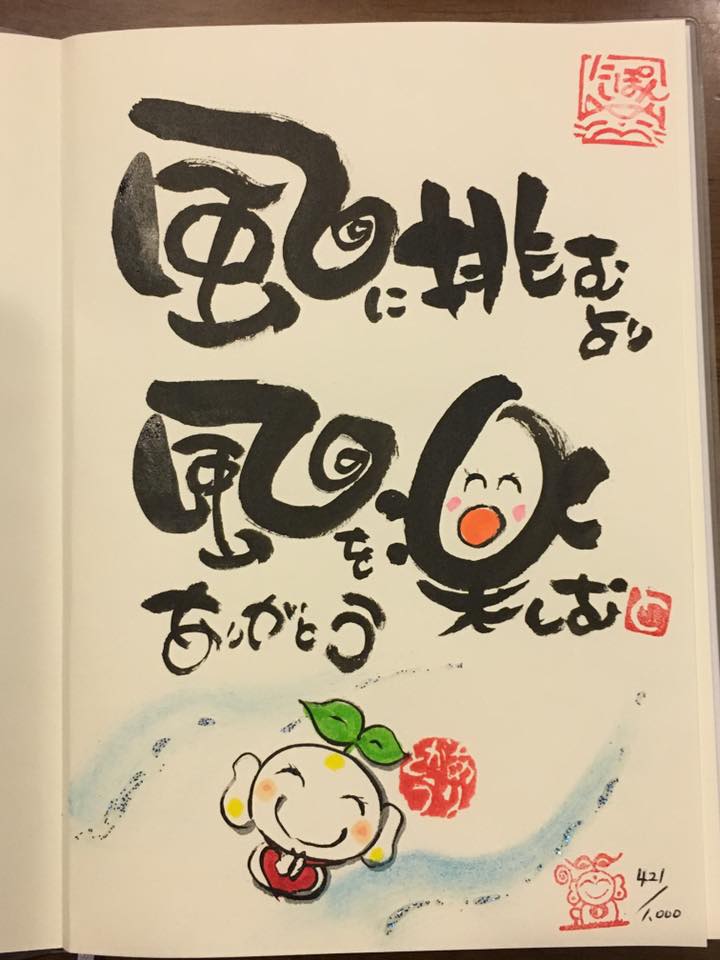 風に挑む
より
風を楽しむ
ありがとう
ありがとう
421
/1,000